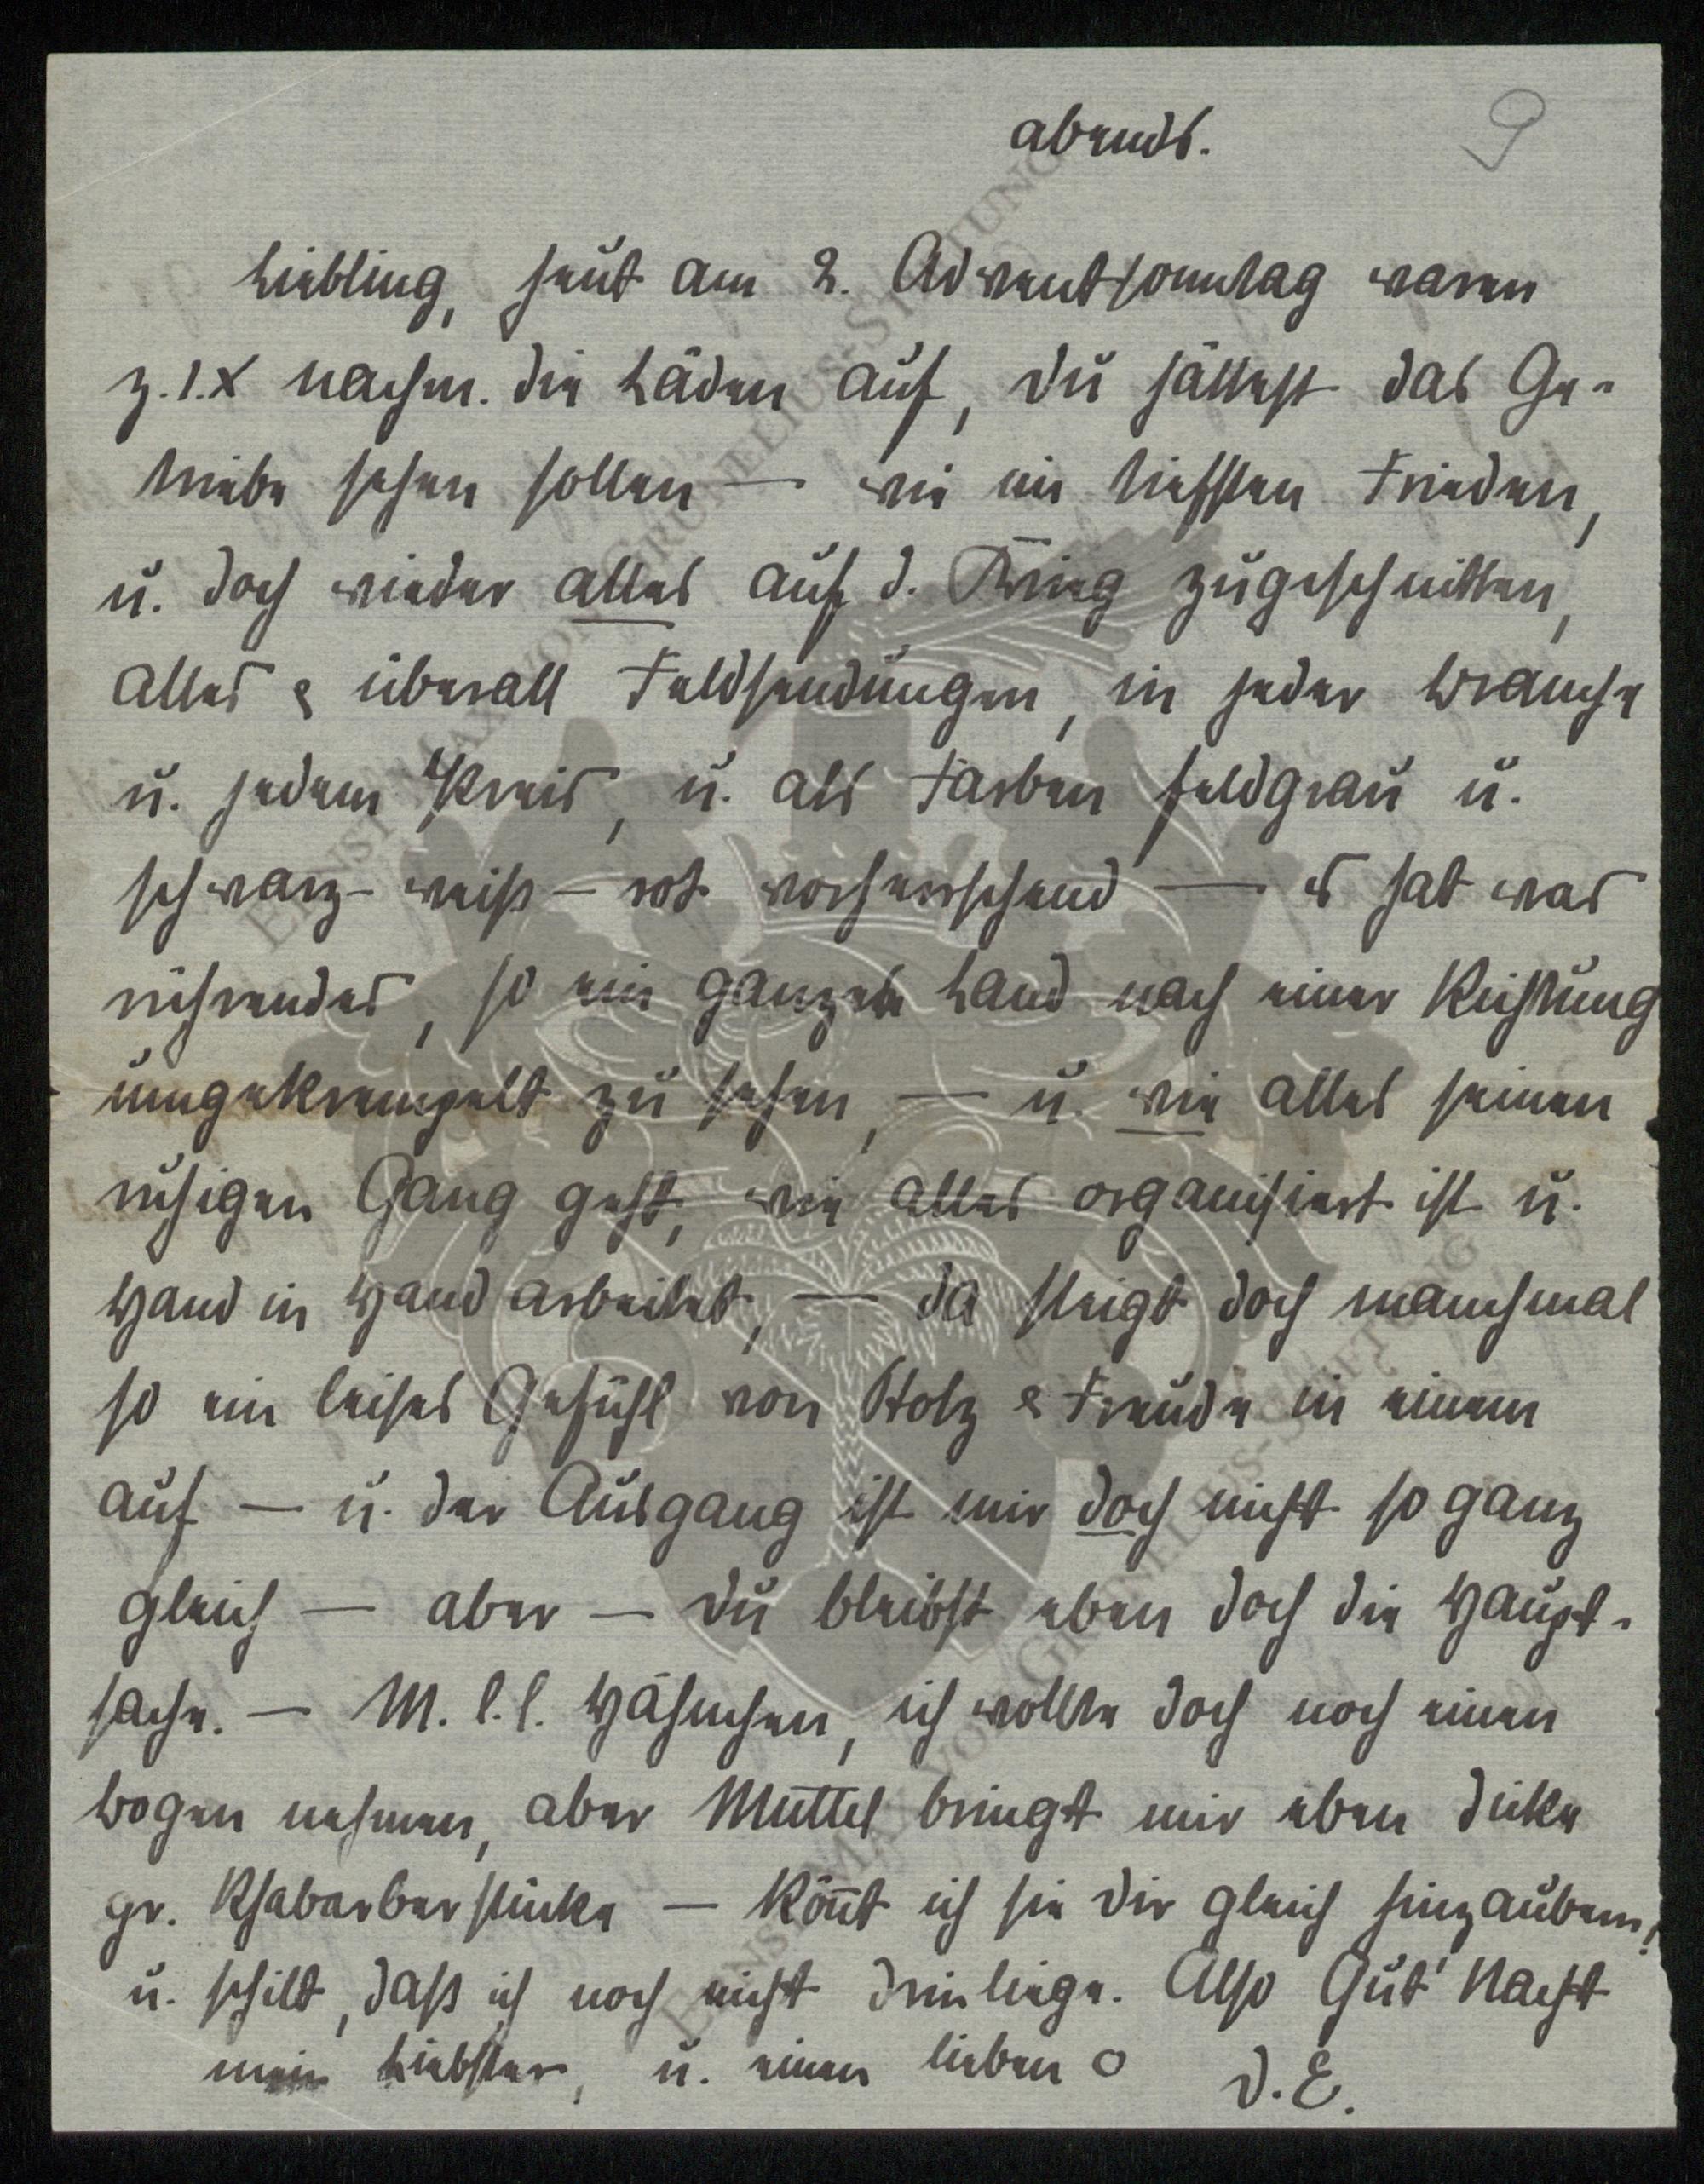 abends.
9
Liebling, heut am 2. Adventsonntag waren
z. 1. x nachm. die Läden auf, Du hättest das Ge-
triebe sehen sollen — wie im tiefsten Frieden,
u. doch wieder alles auf d. Krieg zugeschnitten,
alles & überall Feldsendungen, in jeder Branche
u. jedem Preis, u. als Farben feldgrau u.
schwarz-weiß-rot vorherrschend — es hat was
rührendes, so ein ganzes Land nach einer Richtung
umgekrempelt zu sehen, — u. wie alles seinen
ruhigen Gang geht, wie alles organisiert ist u.
Hand in Hand arbeitet, — da steigt doch manchmal
so ein leises Gefühl von Stolz & Freude in einem
auf — u. der Ausgang ist mir doch nicht so ganz
gleich — aber — Du bleibst eben doch die Haupt-
sache. — M. l. l. Hähnchen, ich wollte doch noch einen
Bogen nehmen, aber Muttel bringt mir eben dicke
gr. Rhabarberstücke — könnt ich sie Dir gleich hinzaubern!
u. schilt, daß ich noch nicht drin liege. Also Gut' Nacht
mein Liebster, u. einen lieben o D. E.
ERNST MAX VON GRUNELIUS-STIFTUNG
ERNST MAX VON GRUNELIUS-STIFTUNG